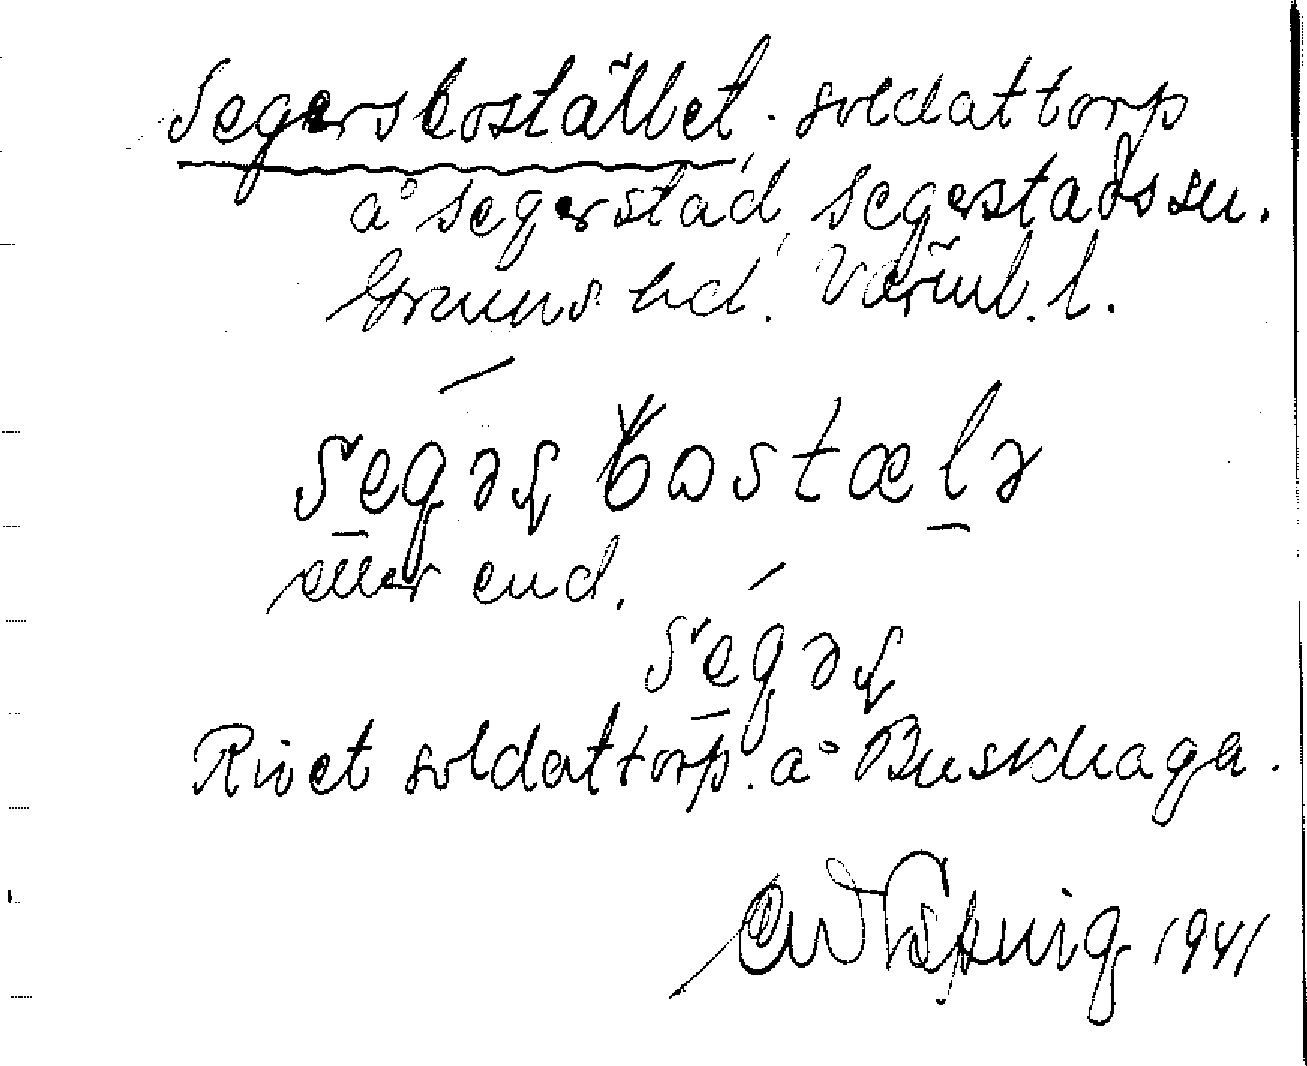 Segersbostället. soldattorp
å Segerstad, Segerstads sn.
Grums hd. Värml. l.
eller end.
Rivet soldattorp. å Buskhaga.
1941